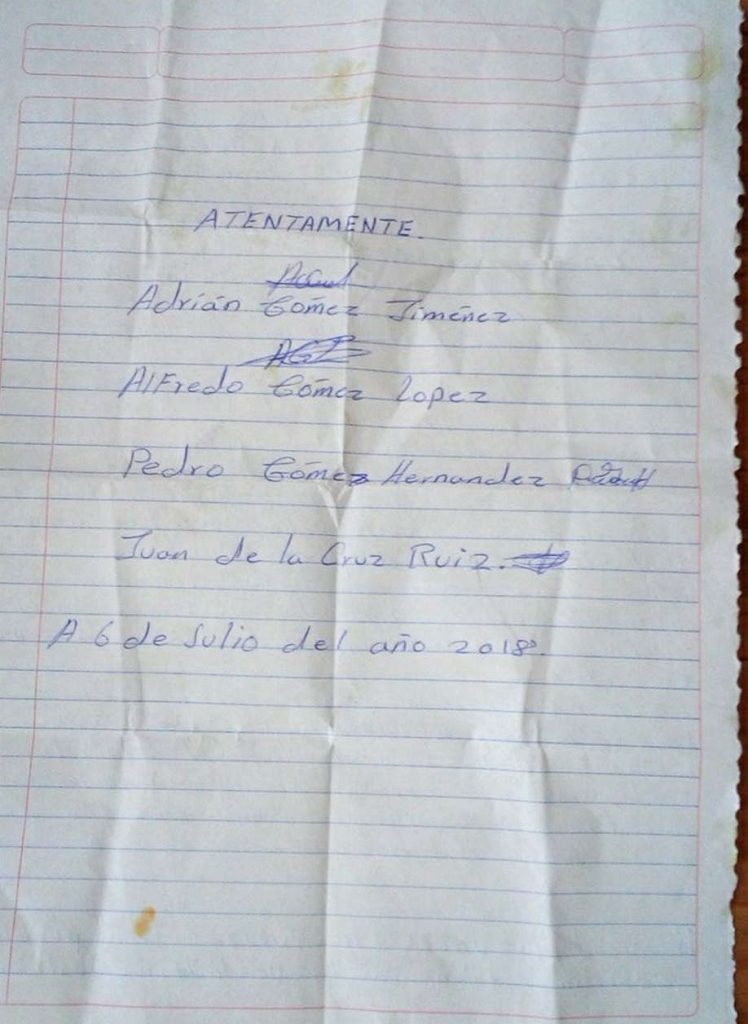 ATENTAMENTE.
Adrián Gómez Jiménez
Alfredo Gómez Lopez
Pedro Gómez Hernandez
Juan de la Cruz Ruiz.
A 6 de Julio del año 2018.